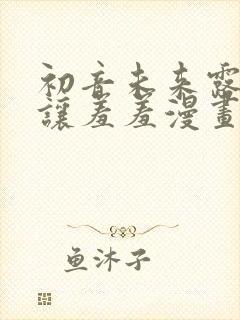 初音未来露
讓羞羞漫畫
鱼沐子